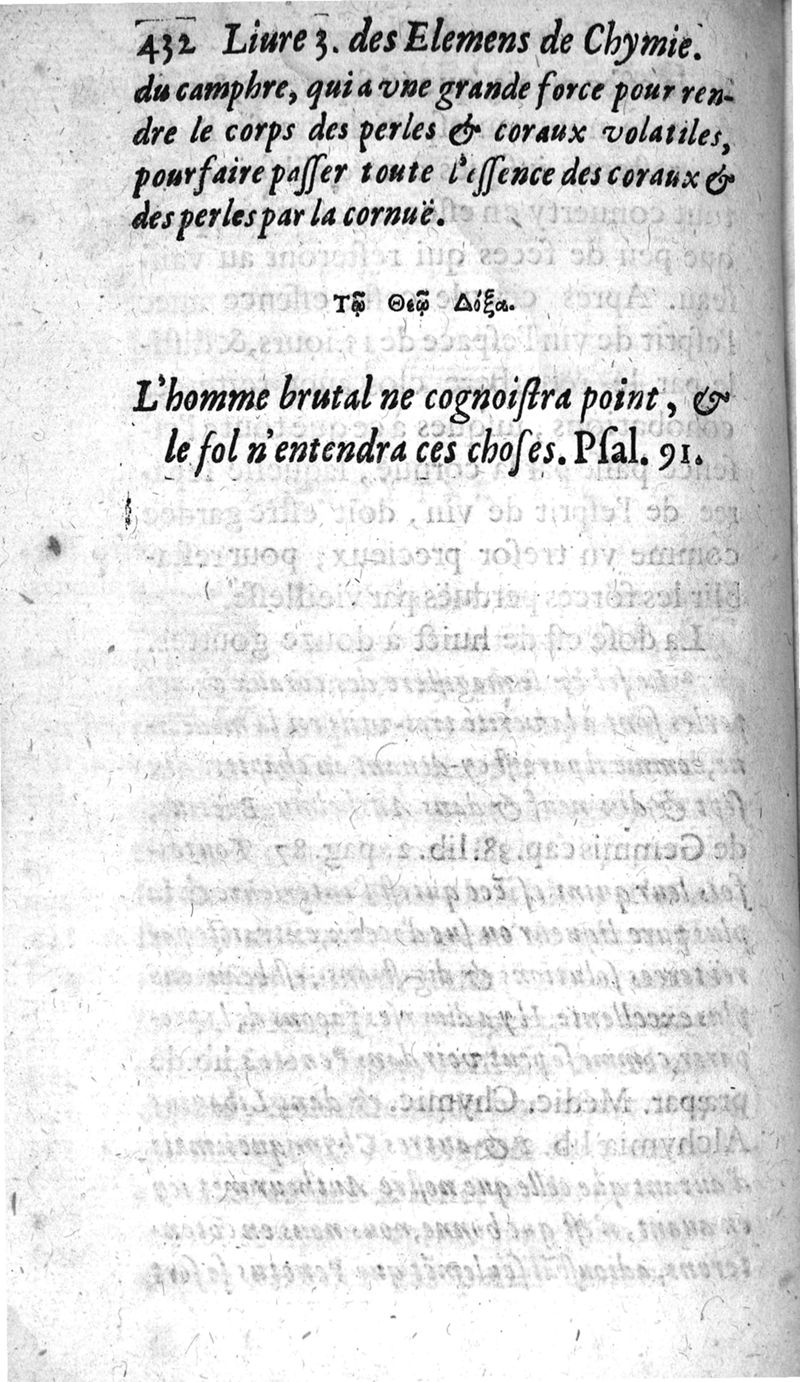 432 Liure 3. des Elemens de Chymie.
du camphre, qui a vne grande force pour ren-
dre le corps des perles & coraux volatiles,
pour faire paſſer toute l'eſſence des coraux &
des perles par la cornuë.
Τῷ Θεῷ Δόξα.
L'homme brutal ne cognoiſtra point, &
le fol n'entendra ces choſes. Pſal. 91.